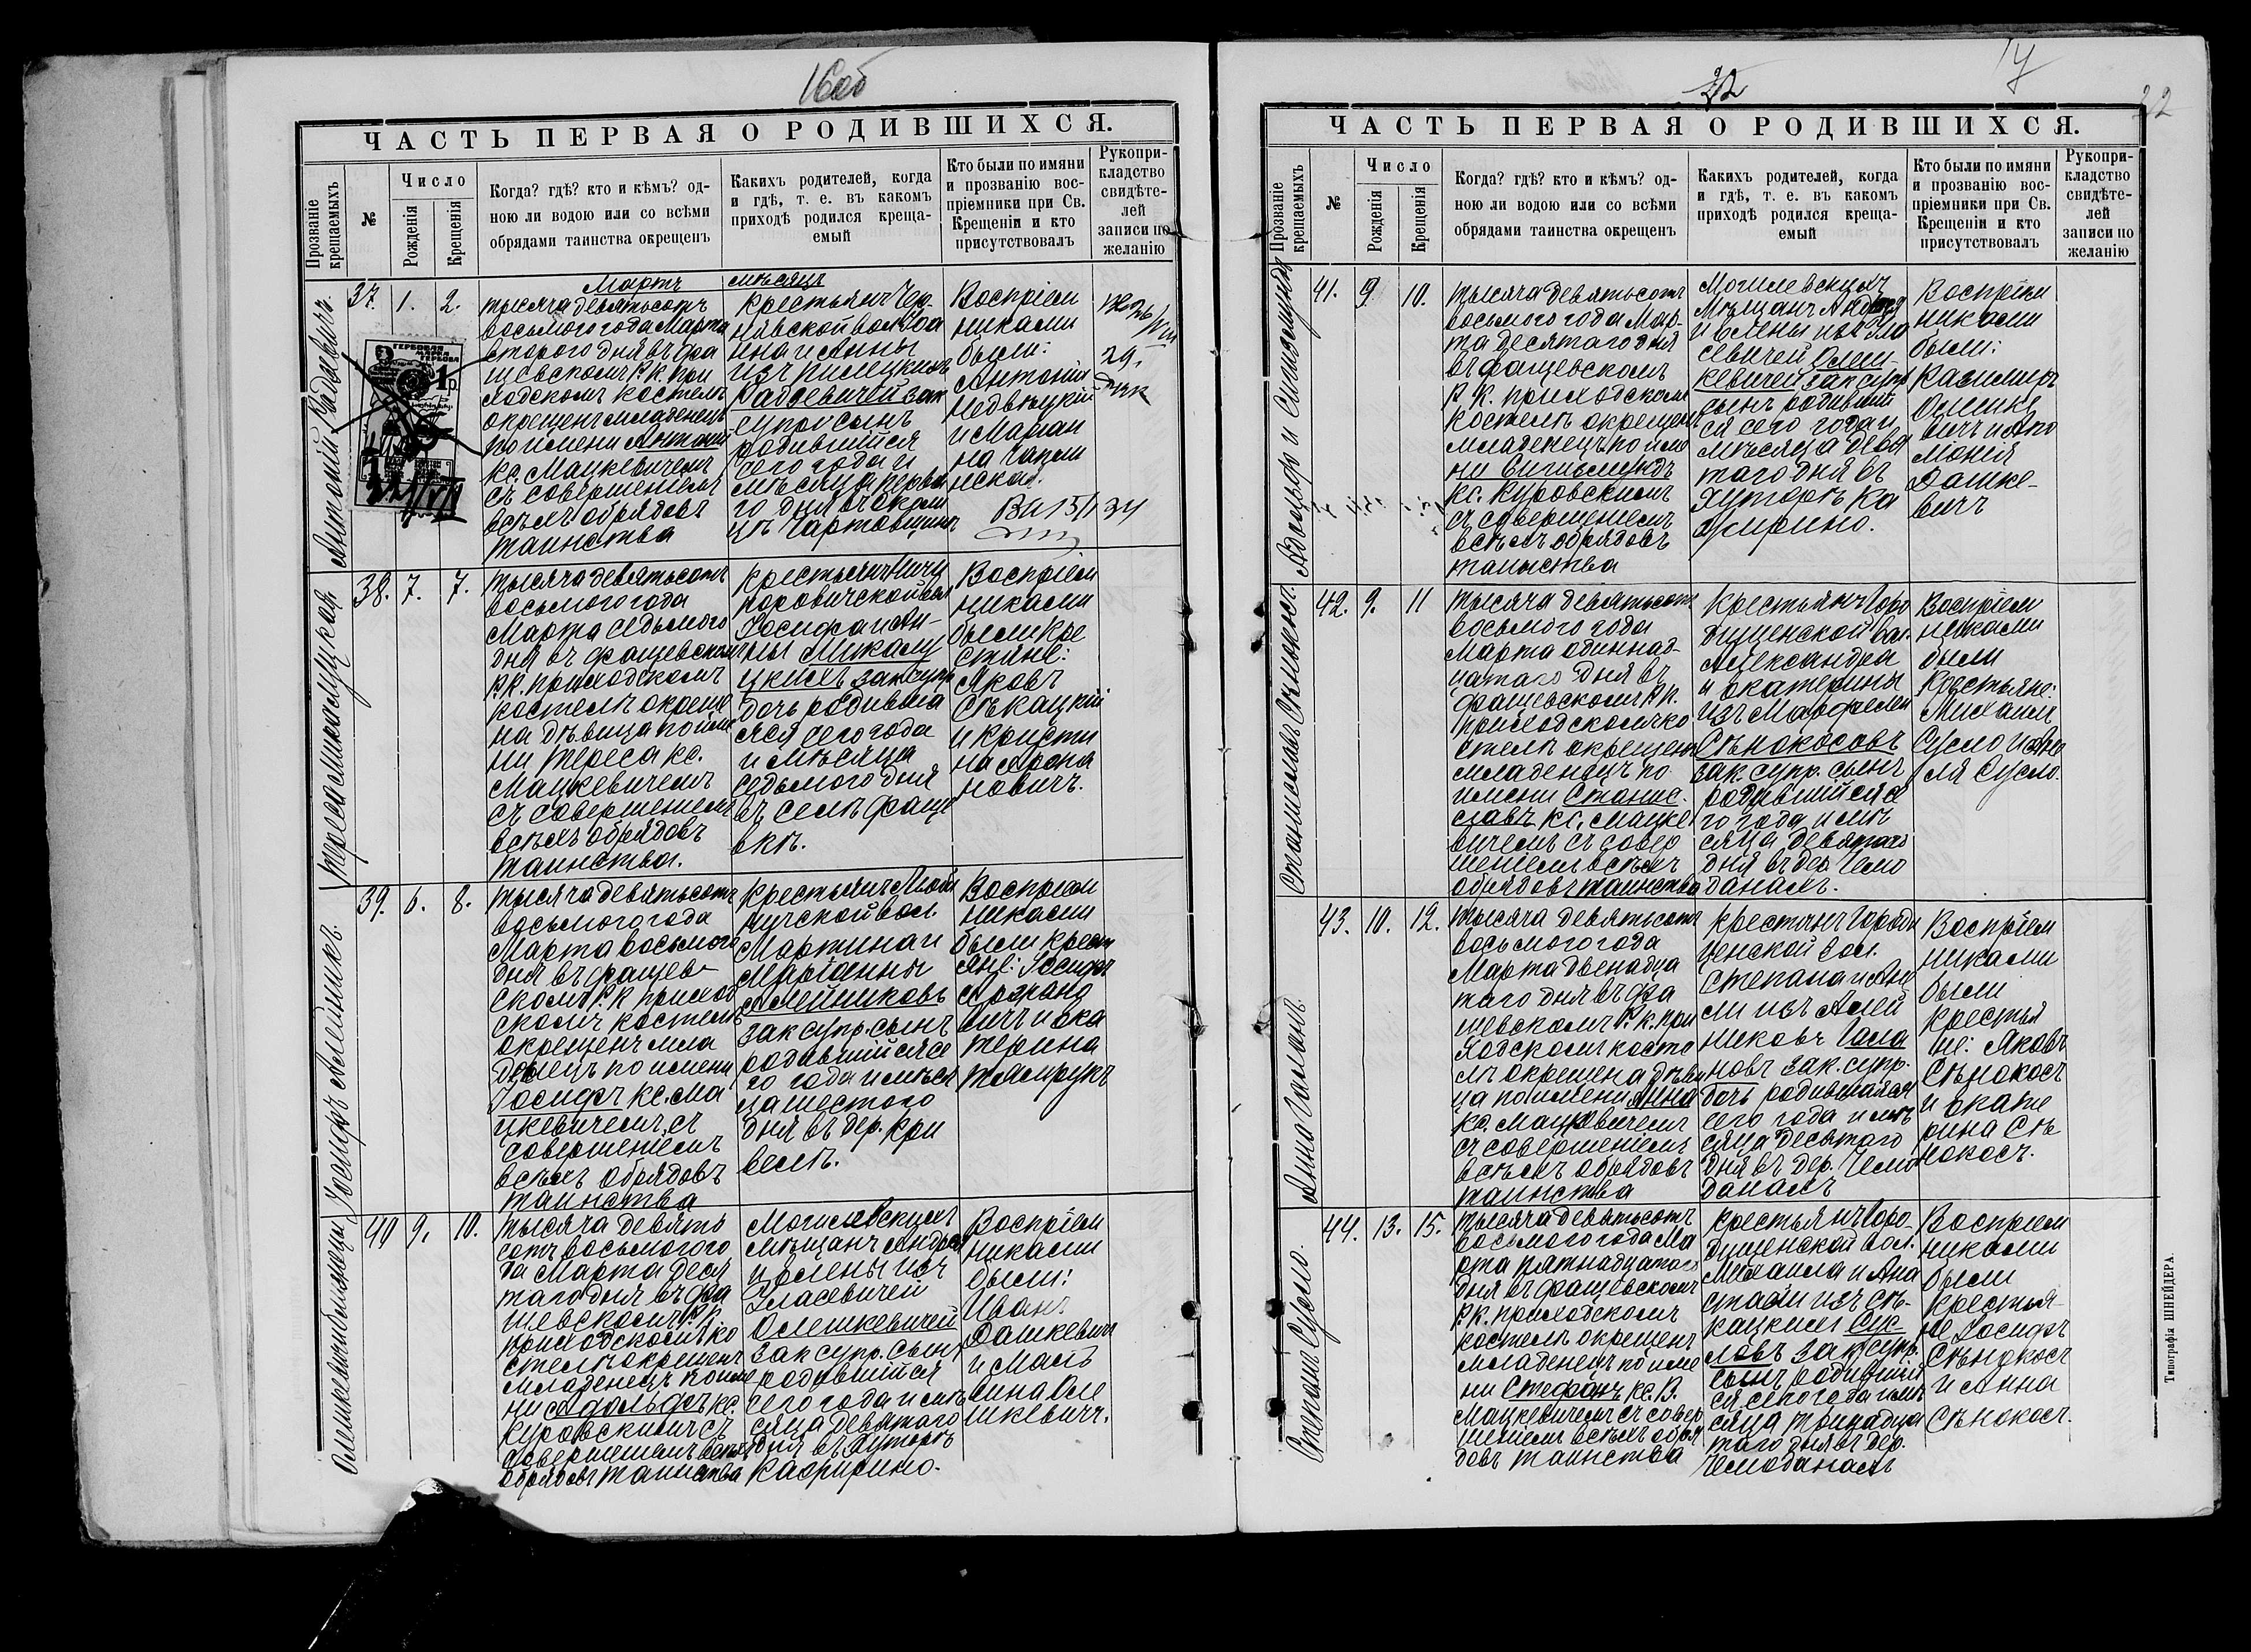 16об
ЧАСТЬ ПЕРВАЯ О РОДИВШИХСЯ.
Прозваніе крещаемыхъ
№
Число
Рожденія
Крещенія
Когда? гдѣ? кто и кѣмъ? од-
ною ли водою или со всѣми
обрядами таинства окрещенъ
Какихъ родителей, когда
и гдѣ, т. е. въ какомъ
приходѣ родился креща-
емый
Кто были по имяни
и прозванію вос-
пріемники при Св.
Крещеніи и кто
присутствовалъ
Рукопри-
кладство
свидѣте-
лей
записи по
желанію
Мартъ мѣсяцъ
Антоній Радзевичъ
37. 1. 2.
ГЕРБОВАЯ
МАРКА
1 р.
тысяча девятьсотъ
восьмого года Марта
второго дня въ Фа
щевскомъ Р. К. при
ходскомъ костелѣ
окрещенъ младенецъ
по имени Антоній
кс. Мацкевичемъ
съ совершеніемъ
всѣхъ обрядовъ
таинства
крестьянъ Чер.
нявской вол. Іоа
нна и Анны
изъ
Радзевичей зак
супр. сынъ
родившійся
сего года и
мѣсяца перва
го дня въ околи
цѣ Чартовщинѣ
Воспріем
никами
были:
Антоній
Недвѣцкій
и Маріан
на Чапли
нская.
29.
Тереса Микалуцкая
38. 7. 7.
тысяча девятьсотъ
восьмого года
Марта седьмого
дня въ Фащевскомъ
Р. К. приходскомъ
костелѣ окреще
на дѣвица по име
ни Тереса кс.
Мацкевичемъ
съ совершеніемъ
всѣхъ обрядовъ
таинства.
крестьянъ
вол
Іосифа и Ан-
ны Микалу
цкихъ зак. супр.
дочь родивша
яся сего года
и мѣсяца
седьмого дня
въ селѣ Фаще
вкѣ.
Воспріем
никами
были кре
стяне:
Яковъ
Сѣкацкій
и Кристи
на
новичъ.
Іосифъ Алейникъ.
39. 6. 8.
тысяча девятьсотъ
восьмого года
Марта восьмого
дня въ Фащев-
скомъ Р. К. приход
скомъ костелѣ
окрещенъ мла
денецъ по имени
Іосифъ кс. Ма
цкевичемъ съ
совершеніемъ
всѣхъ обрядовъ
таинства
крестьянъ
вол.
Мартина и
Маріанны
Алейниковъ
зак супр. сынъ
родившійся се
го года и мѣся
ца шестого
дня въ дер. Кри
велѣ.
Воспріем
никами
были крест
яне: Іосифъ
вичъ и Ека
терина
40 9. 10.
тысяча девять
сотъ восьмого го
да Марта деся
таго дня въ Фа
щевскомъ Р. К.
приходскомъ ко
стелѣ окрещенъ
младенецъ по име
ни Адольфъ кс.
Куровскимъ съ
совершеніемъ всѣхъ
обрядовъ таинства
Могилевскихъ
мѣщанъ Андрея
и Елены изъ
Власевичей
Олешкевичей
зак супр. сынъ
родившійся
сего года и мѣ
сяца девятаго
дня въ хуторѣ
Каффирино.
Воспріем
никами
были:
Иванъ
Дашкевичъ
и Маль
вина Оле
шкевичъ.
32
17
22
ЧАСТЬ ПЕРВАЯ О РОДИВШИХСЯ.
Прозваніе крещаемыхъ
№
Число
Рожденія
Крещенія
Когда? гдѣ? кто и кѣмъ? од-
ною ли водою или со всѣми
обрядами таинства окрещенъ
Какихъ родителей, когда
и гдѣ, т. е. въ какомъ
приходѣ родился креща-
емый
Кто были по имяни
и прозванію вос-
пріемники при Св.
Крещеніи и кто
присутствовалъ
Рукопри-
кладство
свидѣте-
лей
записи по
желанію
Адольфъ и Сигизмундъ
41. 9. 10.
тысяча девятьсотъ
восьмого года Мар-
та десятаго дня
въ Фащевскомъ
Р. К. приходскомъ
костелѣ окрещенъ
младенецъ по име
ни
кс. Куровскимъ
съ совершеніемъ
всѣхъ обрядовъ
таинства
Могилевскихъ
мѣщанъ Андрея
и Елены изъ Вла
севичей Олеш-
кевичей зак супр
сынъ родивший
ся сего года и
мѣсяца девя
таго дня въ
хуторѣ Ка
фирино.
Воспріем
никами
были:
Казимиръ
Олешке
вичъ и Апо
лонія
Дашке-
вичъ
Станиславъ Сѣнокосъ.
42. 9. 11
тысяча девятьсотъ
восьмого года
Марта одиннад-
цатаго дня въ
Фащевскомъ Р. К.
приходскомъ ко
стелѣ окрещенъ
младенецъ по
имени Станис.
лавъ кс. Мацке
вичемъ съ совер
шеніемъ всѣхъ
обрядовъ таинства
крестьянъ Горо
дищенской вол.
Александра
и Екатерины
изъ
Сѣнокосовъ
зак. супр. сынъ
родившийся се
го года и мѣ
сяца девятаго
дня въ дер. Чемо
данахъ.
Воспріем
никами
были
крестьяне:
Михаилъ
Сусло и Ане
ля Сусло.
Анна Галанъ
43. 10. 12.
тысяча девятьсотъ
восьмого года
Марта двенадца
таго дня въ Фа
щевскомъ Р. К. при
ходскомъ косте
лѣ окрещена дѣви
ца по имени Анна
кс. Мацкевичемъ
съ совершеніемъ
всѣхъ обрядовъ
таинства
крестянъ Городи
щенской вол.
Степана и Ане
ли изъ Алей
никовъ Гала
новъ зак. супр.
дочь родившаяся
сего года и мѣ
сяца десятаго
дня въ дер. Чемо
данахъ
Воспріем
никами
были
крестья
не: Яковъ
Сѣнокосъ
и Екате
рина Сѣ
нокосъ.
Стефанъ Сусло.
44. 13. 15.
тысяча девятьсотъ
восьмого года Ма
рта пятнадцатаго
дня въ Фащевскомъ
Р. К. приходскомъ
костелѣ окрещенъ
младенецъ по име
ни Стефанъ кс. В.
Мацкевичемъ съ совер
шеніемъ всѣхъ обря
довъ таинства
крестьянъ Горо-
дищенской вол.
Михаила и Ана
стасіи изъ Сѣ-
кацкихъ Сус
ловъ зак супр.
сынъ родивший
ся сего года и мѣ
сяца тринадца
таго дня въ дер.
Чемоданахъ
Воспріем
никами
были
крестья-
не Іосифъ
Сѣнокосъ
и Анна
Сѣнокосъ.
Типографія ШНЕЙДЕРА